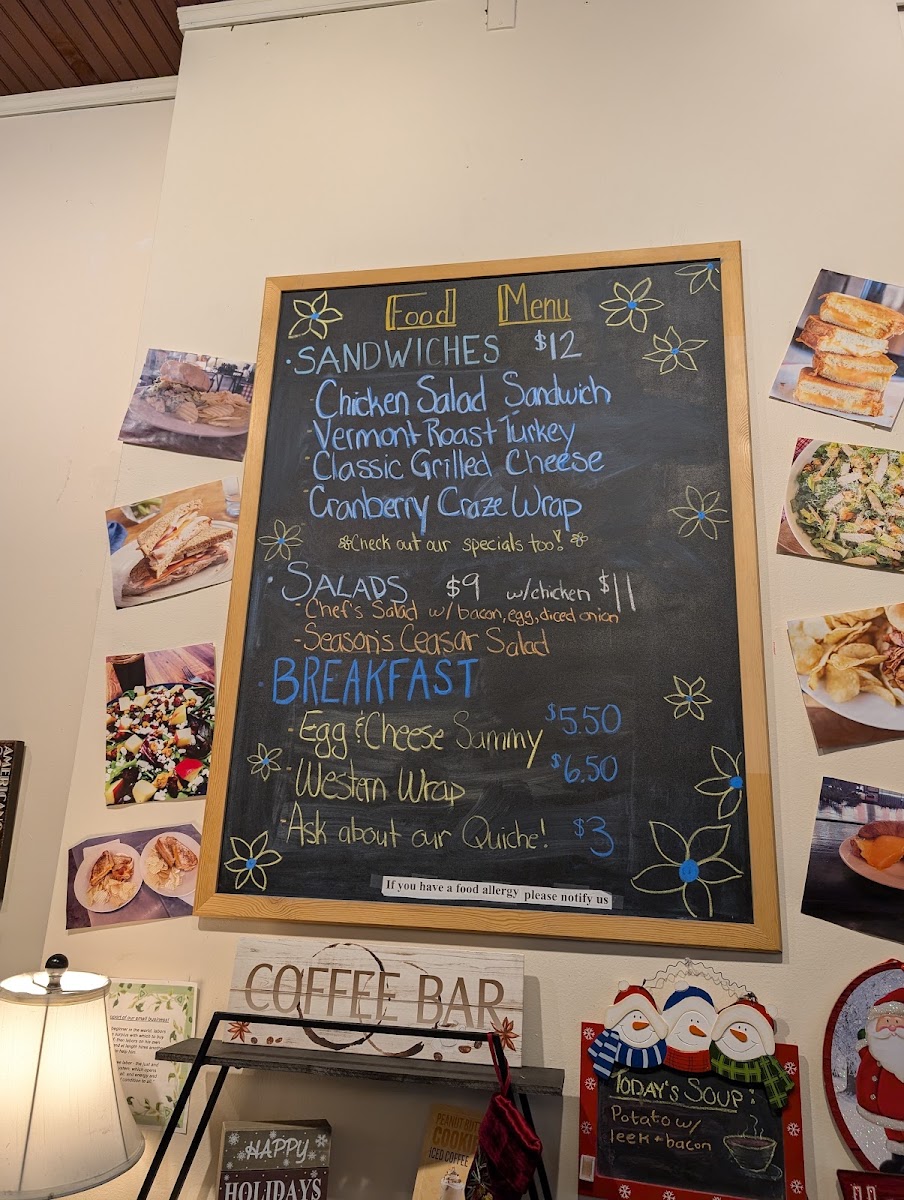 Food Menu
·SANDWICHES $12
-Chicken Salad Sandwich
-Vermont Roast Turkey
-Classic Grilled Cheese
-Cranberry Craze Wrap
Check out our specials too!
·SALADS $9 w/chicken $11
-Chef's Salad w/ bacon, egg, diced onion
-Season's Ceasar Salad
·BREAKFAST
-Egg & Cheese Sammy $5.50
-Western Wrap $6.50
-Ask about our Quiche! $3
If you have a food allergy please notify us
AMERICAN
COFFEE BAR
TODAY'S SOUP:
Potato w/
leek + bacon
HAPPY
HOLIDAYS
PEANUT
COOKIE
ICED COFFEE